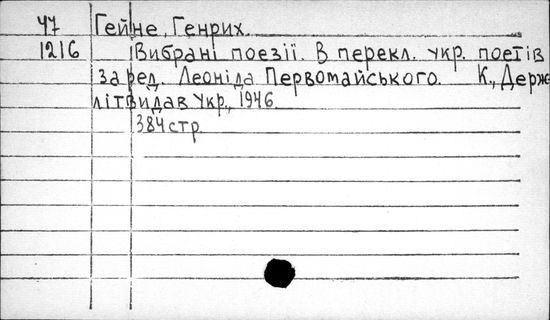 Ч7 Гейне, Генрих.
1216 Вибрані поезії. В перекл. укр. поетів
за ред. Леоніда Первомайського. К., Держ
літвидав Укр., 1946.
384 стр.